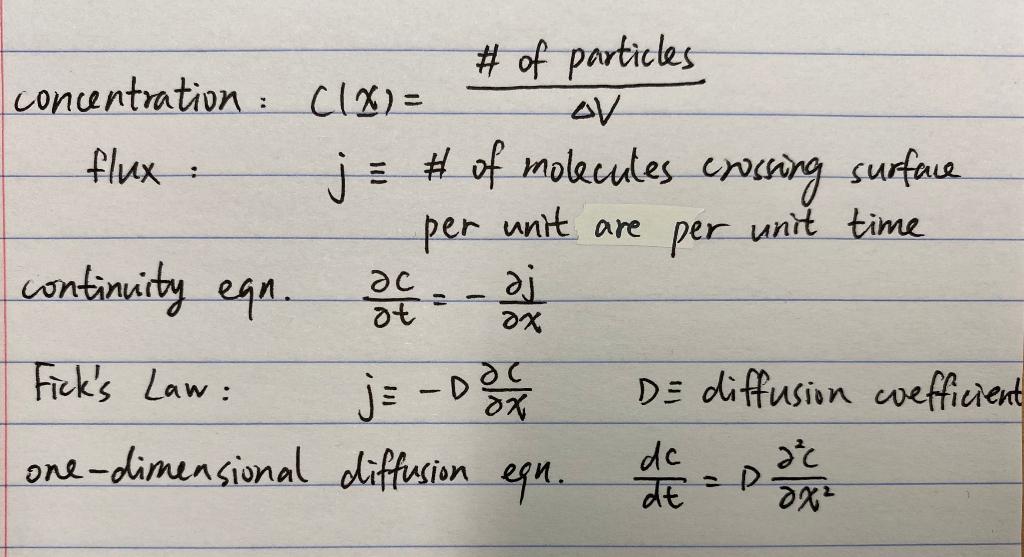 concentration : C(x) = # of particles / ΔV
flux : j ≡ # of molecules crossing surface
per unit are per unit time
continuity eqn. ∂C/∂t = - ∂j/∂x
Fick's Law : j ≡ -D ∂C/∂x D ≡ diffusion coefficient
one-dimensional diffusion eqn. dc/dt = D ∂²C/∂x²